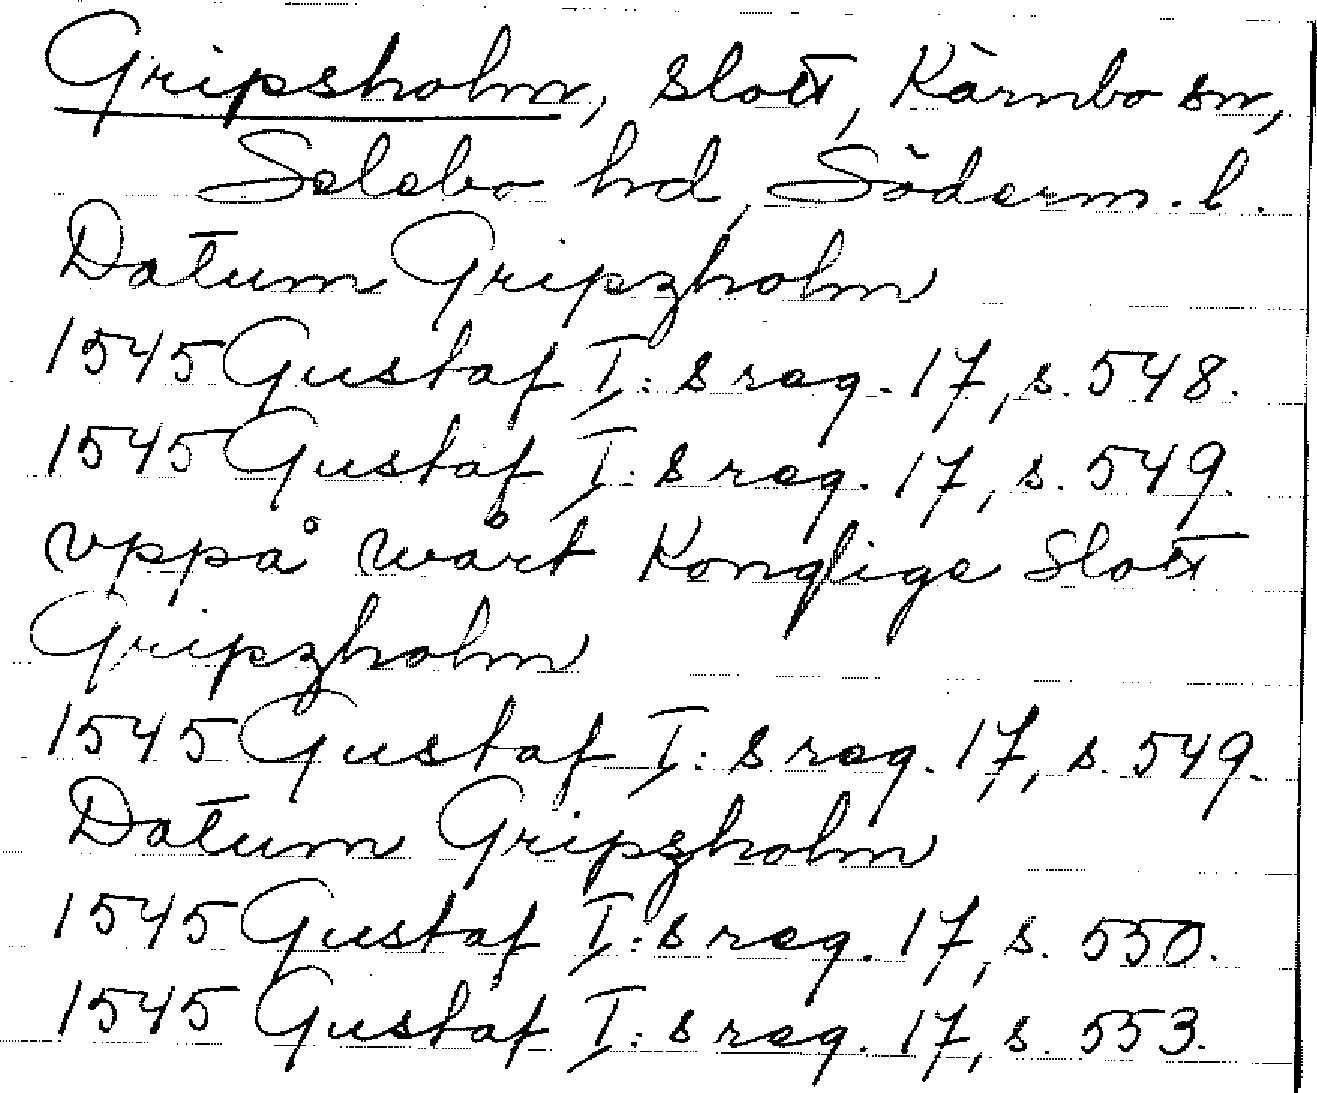 Gripsholm, slott, Kärnbo sn,
Selebo hd, Söderm. l.
Datum Gripzholm
1545 Gustaf I:s reg. 17, s. 548.
1545 Gustaf I:s reg. 17, s. 549.
vppå wårt Konglige Slott
Gripzholm
1545 Gustaf I:s reg. 17, s. 549.
Datum Gripszholm
1545 Gustaf I:s reg. 17, s. 550.
1545 Gustaf I:s reg. 17, s. 553.